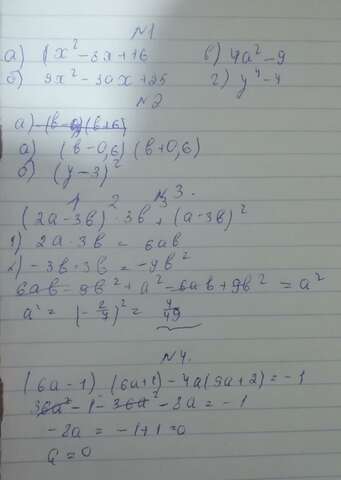 №1
а) x² - 8x + 16 в) 4a² - 9
б) 9x² - 30x + 25 г) y⁴ - 4
№2
а) (в - 0,6)(в + 0,6)
б) (y - 3)²
1 2 №3.
(2a - 3в) · 3в + (a - 3в)²
1) 2a · 3в = 6aв
2) - 3в · 3в = -9в²
6aв - 9в² + a² - 6aв + 9в² = a²
a² = (- 2/7)² = 4/49
№4.
(6a - 1) (6a + 1) - 4a(9a + 2) = -1
36a² - 1 - 36a² - 8a = -1
- 8a = -1 + 1 = 0
a = 0